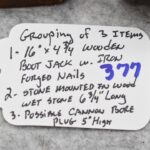 Grouping of 3 Items
1- 16" x 4 3/4 Wooden
Boot Jack w. Iron
Forged Nails
377
2- Stone mounted in wood
wet stone 6 3/4" Long
3- Possible Cannon Bore
Plug 5" High